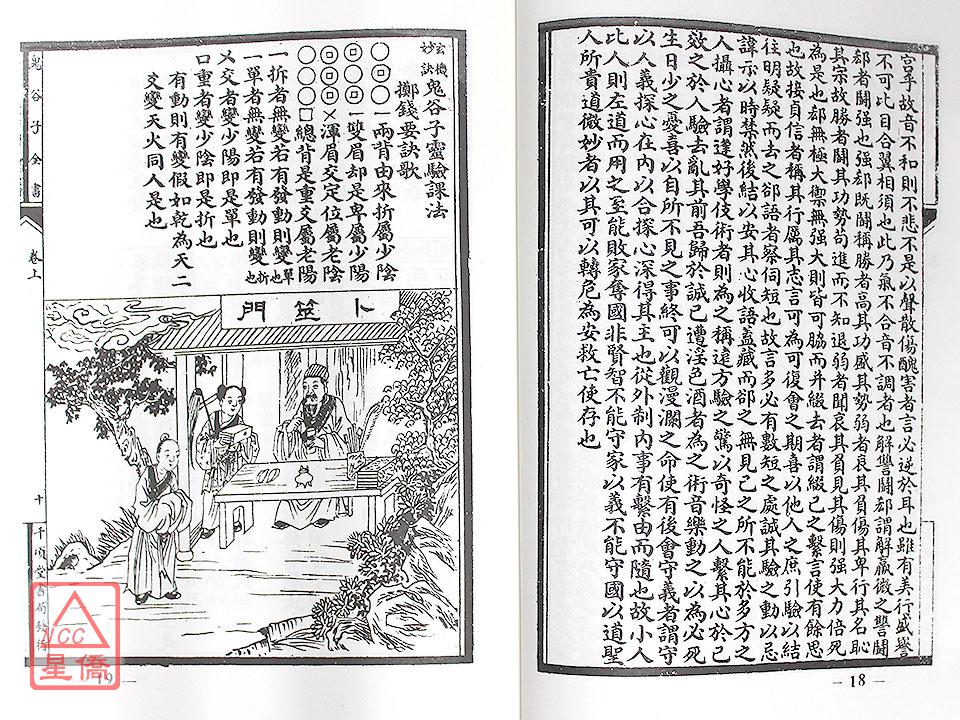 宮乎故音不和則不悲不是以聲散傷醜害者言必逆於耳也雖有美行盛譽
不可比目合翼相須也此乃氣不合音不調者也解讐鬪郄謂解羸微之讐鬪
郄者鬪强也强郄既鬪稱勝者高其功盛其勢弱者哀其負傷其卑行其名恥
其宗故勝者鬪其功勢苟進而不知退弱者聞哀其負見其傷則强大力倍死
為是也郄無極大禦無强大則皆可脇而并綴去者謂綴己之繫言使有餘思
也故接貞信者稱其行厲其志言可為可復會之期喜以他人之庶引驗以結
往明疑疑而去之郤語者察伺短也故言多必有數短之處誠其驗之動以忌
諱示以時禁然後結以安其心收語蓋藏而郤之無見己之所不能於多方之
人攝心者謂逢好學伎術者則為之稱遠方驗之驚以奇怪之人繫其心於己
效之於人驗去亂其前吾歸於誠己遭淫色酒者為之術音樂動之以為必死
生日少之憂喜以自所不見之事終可以觀漫瀾之命使有後會守義者謂守
以人義探心在內以合探心深得其主也從外制內事有繫由而隨也故小人
比人則左道而用之至能敗家奪國非賢智不能守家以義不能守國以道聖
人所貴道微妙者以其可以轉危為安救亡使存也
— 18 —
玄機妙訣 鬼谷子靈驗課法
擲錢要訣歌
一兩背由來折屬少陰
一雙眉却是卑屬少陽
乂渾眉交定位屬老陰
口總背是重爻屬老陽
一折者無變若有發動則變單也
一單者無變若有發動則變折也
乂交者變少陽即是單也
口重者變少陰即是折也
有動則有變假如乾為天二
爻變天火同人是也
卜筮門
鬼谷子全書
卷上
十
千頃堂書局發行
19 —
NCC
星僑